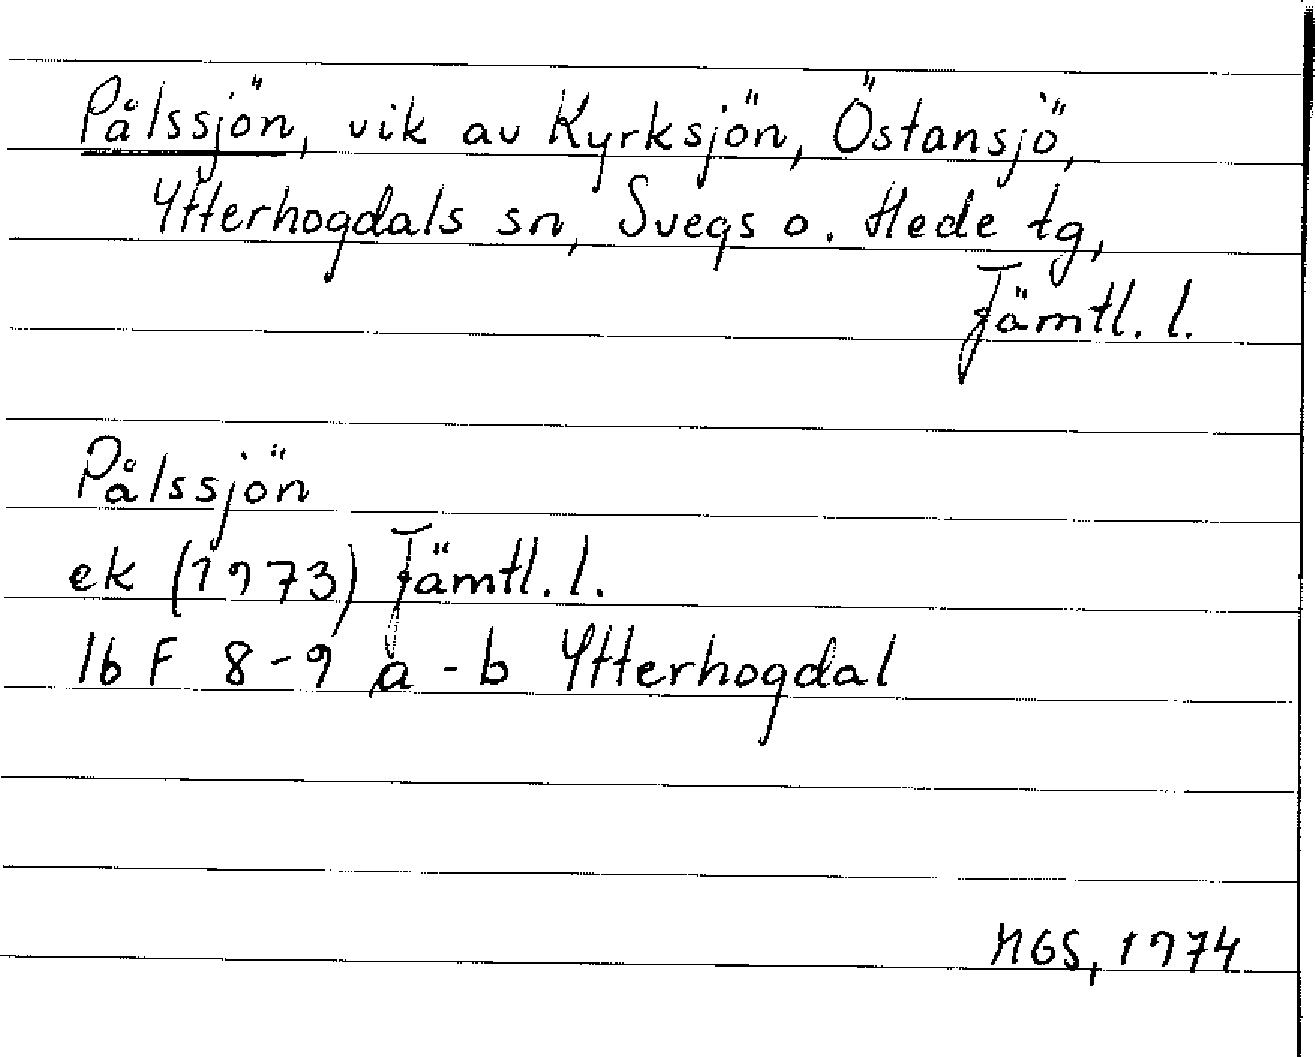 Pålssjön, vik av Kyrksjön, Östansjö,
Ytterhogdals sn, Svegs o. Hede tg,
Jämtl. l.
Pålssjön
ek (1973) Jämtl. l.
16 F 8-9 a-b Ytterhogdal
MGS, 1974